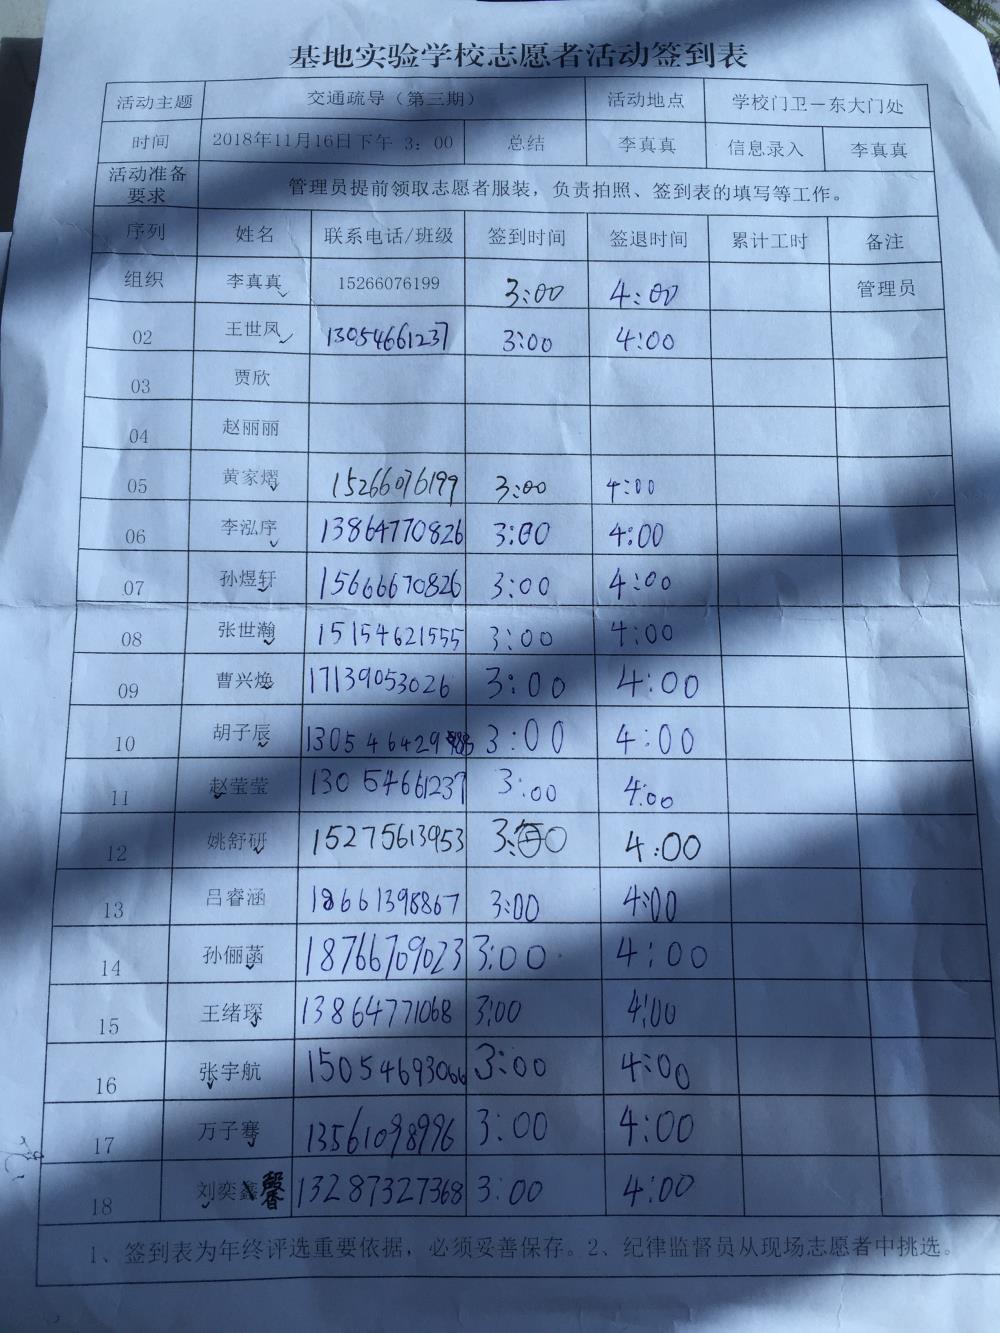 基地实验学校志愿者活动签到表
活动主题 交通疏导（第三期） 活动地点 学校门卫－东大门处
时间 2018年11月16日下午 3：00 总结 李真真 信息录入 李真真
活动准备要求 管理员提前领取志愿者服装，负责拍照、签到表的填写等工作。
序列 姓名 联系电话/班级 签到时间 签退时间 累计工时 备注
组织 李真真 15266076199 3:00 4:00 管理员
02 王世凤 13054661237 3:00 4:00
03 贾欣
04 赵丽丽
05 黄家熠 15266076199 3:00 4:00
06 李泓序 13864770826 3:00 4:00
07 孙煜轩 15666670826 3:00 4:00
08 张世瀚 15154621555 3:00 4:00
09 曹兴焕 17139053026 3:00 4:00
10 胡子辰 3:00 4:00
11 赵莹莹 13054661237 3:00 4:00
12 姚舒研 15275613953 4:00
13 吕睿涵 18661398867 3:00 4:00
14 孙俪菡 18766709023 3:00 4:00
15 王绪琛 13864771068 3:00 4:00
16 张宇航 15054693066 3:00 4:00
17 万子骞 13561098996 3:00 4:00
18 刘奕馨 13287327368 3:00 4:00
1、签到表为年终评选重要依据，必须妥善保存。2、纪律监督员从现场志愿者中挑选。